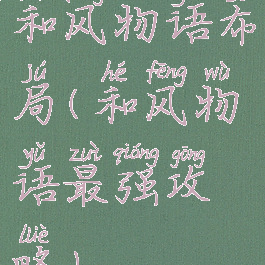 和风物语布
jú hé fēng wù
局(和风物
yǔ zuì qiáng gōng
语最强攻
lüè
略)